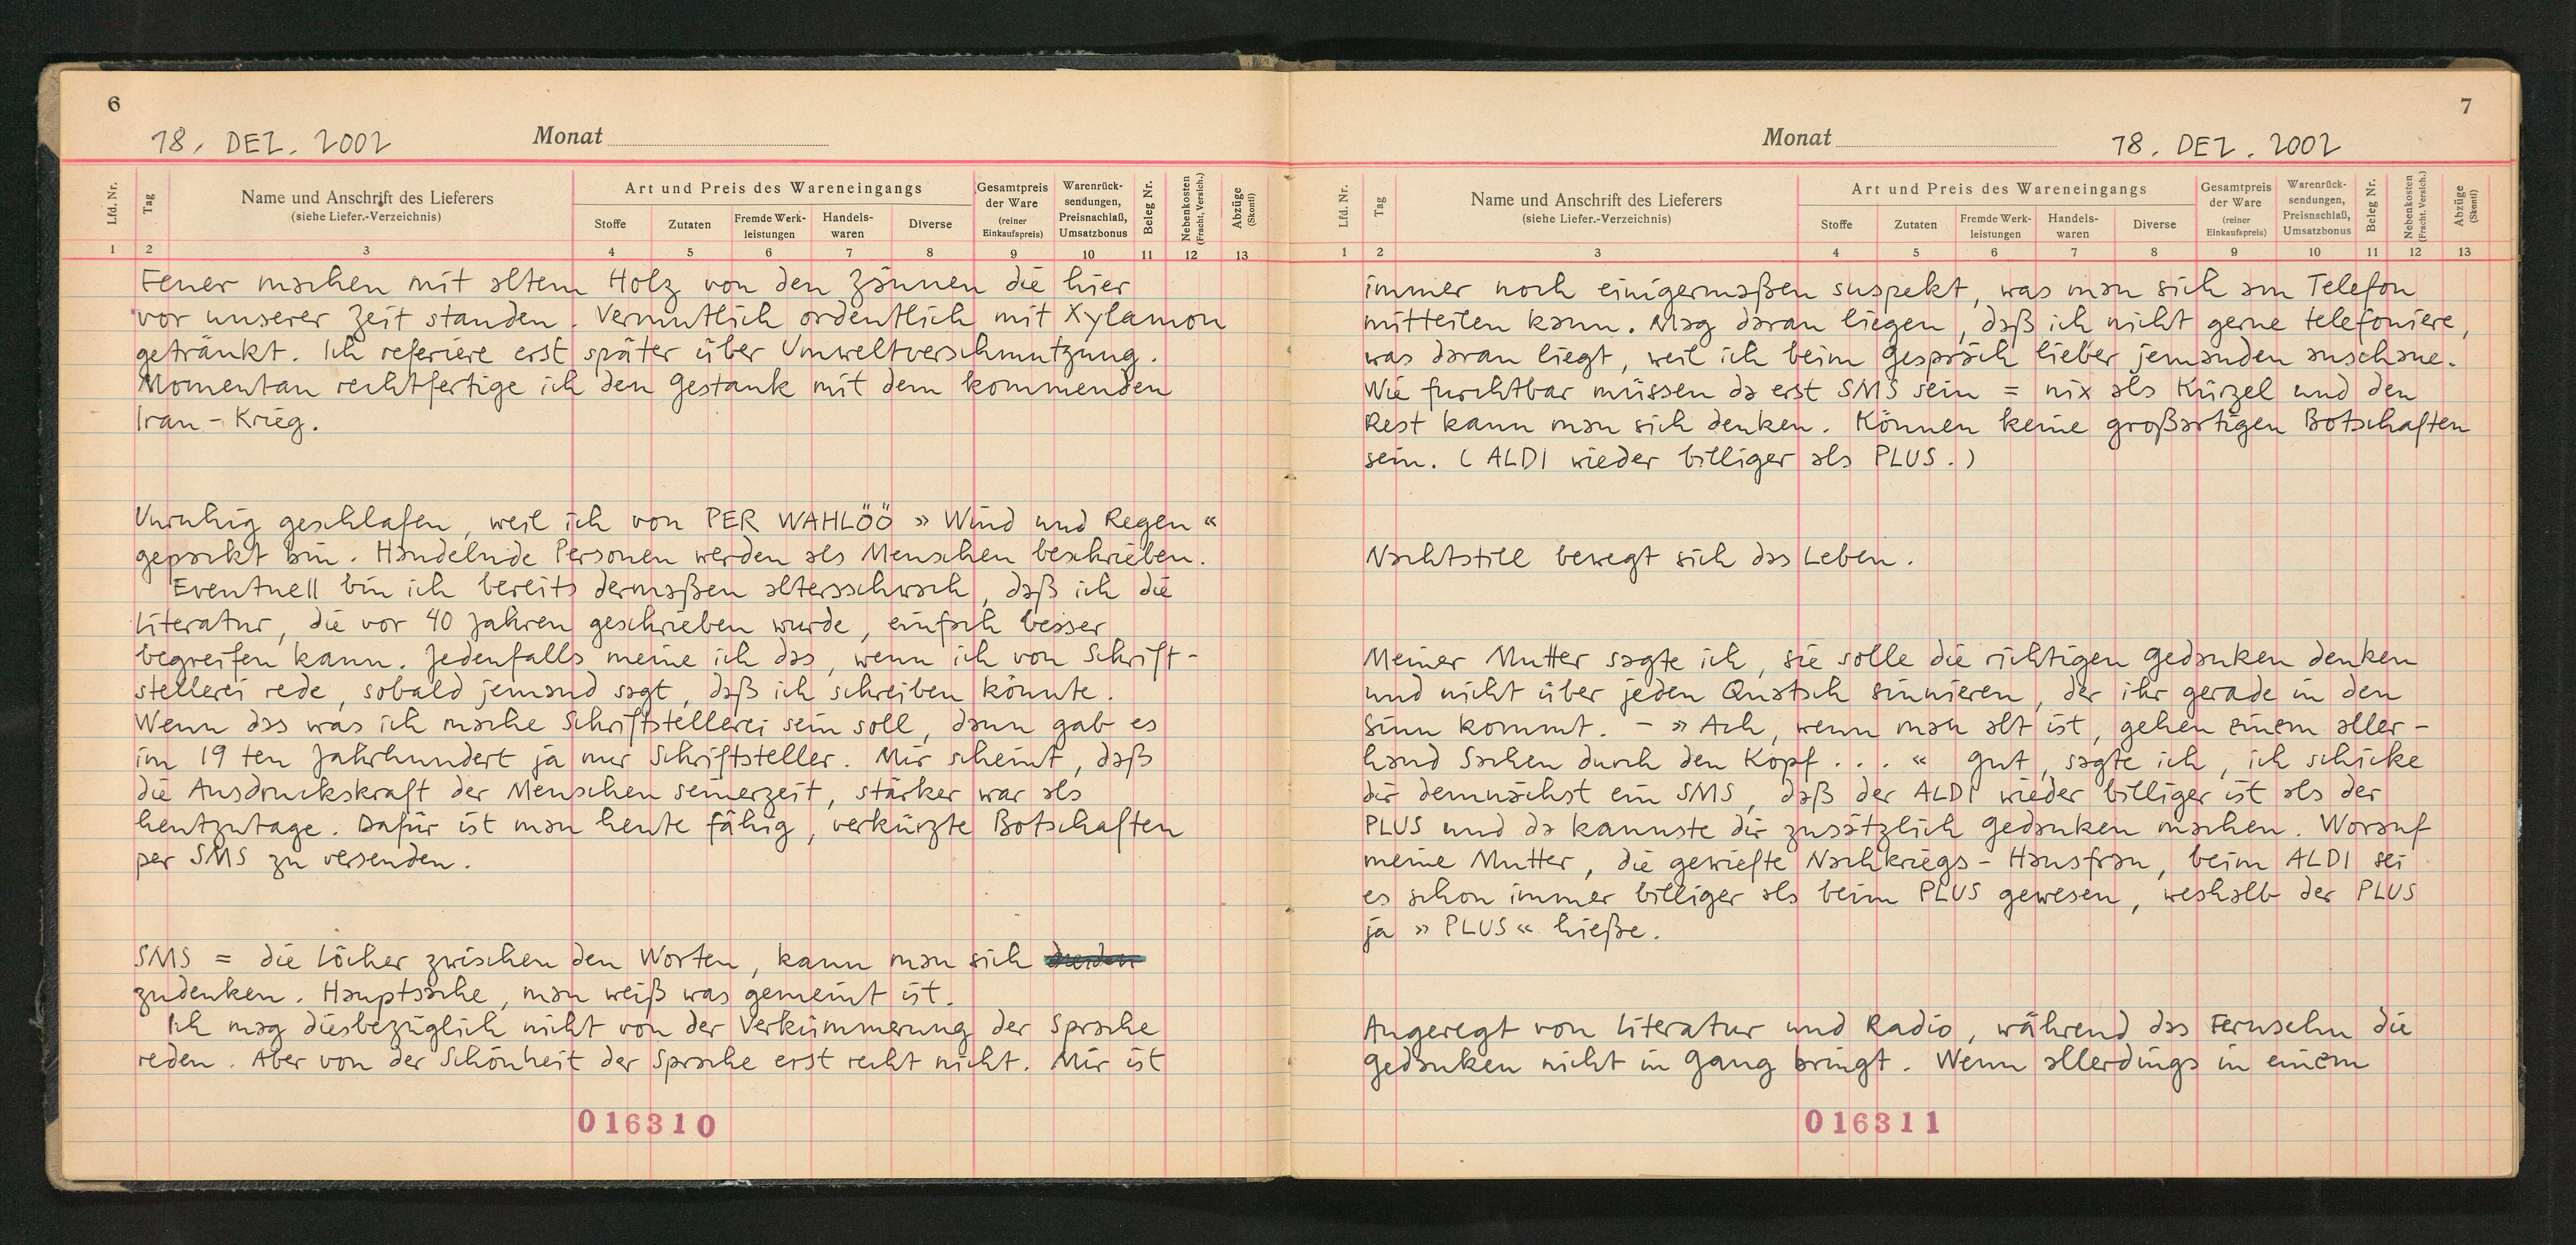 6
18. DEZ. 2002
Monat
Lfd. Nr.
Tag
Name und Anschrift des Lieferers
(siehe Liefer.-Verzeichnis)
Art und Preis des Wareneingangs
Stoffe
Zutaten
Fremde Werk-
leistungen
Handels-
waren
Diverse
Gesamtpreis
der Ware
(reiner
Einkaufspreis)
Warenrück-
sendungen,
Preisnachlaß,
Umsatzbonus
Beleg Nr.
Nebenkosten
(Fracht, Versich.)
Abzüge
(Skonti)
1 2 3 4 5 6 7 8 9 10 11 12 13
Feuer machen mit altem Holz von den Zäunen die hier
vor unserer Zeit standen. Vermutlich ordentlich mit Xylamon
getränkt. Ich referiere erst später über Umweltverschmutzung.
Momentan rechtfertige ich den Gestank mit dem kommenden
Iran-Krieg.
Unruhig geschlafen, weil ich von PER WAHLÖÖ »Wind und Regen«
gepackt bin. Handelnde Personen werden als Menschen beschrieben.
Eventuell bin ich bereits dermaßen altersschwach, daß ich die
Literatur, die vor 40 Jahren geschrieben wurde, einfach besser
begreifen kann. Jedenfalls meine ich das, wenn ich von Schrift-
stellerei rede, sobald jemand sagt, daß ich schreiben könnte.
Wenn das was ich mache Schriftstellerei sein soll, dann gab es
im 19 ten Jahrhundert ja nur Schriftsteller. Mir scheint, daß
die Ausdruckskraft der Menschen seinerzeit, stärker war als
heutzutage. Dafür ist man heute fähig, verkürzte Botschaften
per SMS zu versenden.
SMS = die Löcher zwischen den Worten, kann man sich
zudenken. Hauptsache, man weiß was gemeint ist.
Ich mag diesbezüglich nicht von der Verkümmerung der Sprache
reden. Aber von der Schönheit der Sprache erst recht nicht. Mir ist
016310
7
Monat
18. DEZ. 2002
Lfd. Nr.
Tag
Name und Anschrift des Lieferers
(siehe Liefer.-Verzeichnis)
Art und Preis des Wareneingangs
Stoffe
Zutaten
Fremde Werk-
leistungen
Handels-
waren
Diverse
Gesamtpreis
der Ware
(reiner
Einkaufspreis)
Warenrück-
sendungen,
Preisnachlaß,
Umsatzbonus
Beleg Nr.
Nebenkosten
(Fracht, Versich.)
Abzüge
(Skonti)
1 2 3 4 5 6 7 8 9 10 11 12 13
immer noch einigermaßen suspekt, was man sich am Telefon
mitteilen kann. Mag daran liegen, daß ich nicht gerne telefoniere,
was daran liegt, weil ich beim Gespräch lieber jemanden anschaue.
Wie furchtbar müssen da erst SMS sein = nix als Kürzel und den
Rest kann man sich denken. Können keine großartigen Botschaften
sein. (ALDI wieder billiger als PLUS.)
Nachtstill bewegt sich das Leben.
Meiner Mutter sagte ich, sie solle die richtigen Gedanken denken
und nicht über jeden Quatsch sinnieren, der ihr gerade in den
Sinn kommt. - »Ach, wenn man alt ist, gehen einem aller-
hand Sachen durch den Kopf...« Gut, sagte ich, ich schicke
dir demnächst ein SMS, daß der ALDI wieder billiger ist als der
PLUS und da kannste dir zusätzlich Gedanken machen. Worauf
meine Mutter, die gewiefte Nachkriegs-Hausfrau, beim ALDI sei
es schon immer billiger als beim PLUS gewesen, weshalb der PLUS
ja »PLUS« hieße.
Angeregt von Literatur und Radio, während das Fernsehn die
Gedanken nicht in Gang bringt. Wenn allerdings in einem
016311